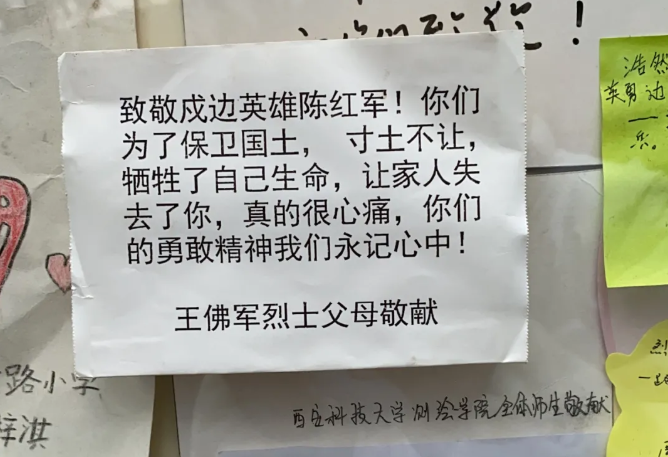 致敬戍边英雄陈红军！你们
为了保卫国土， 寸土不让，
牺牲了自己生命，让家人失
去了你，真的很心痛，你们
的勇敢精神我们永记心中！
王佛军烈士父母敬献
浩然
英勇边
路小学
梓淇
西安科技大学测绘学院全体师生敬献
烈